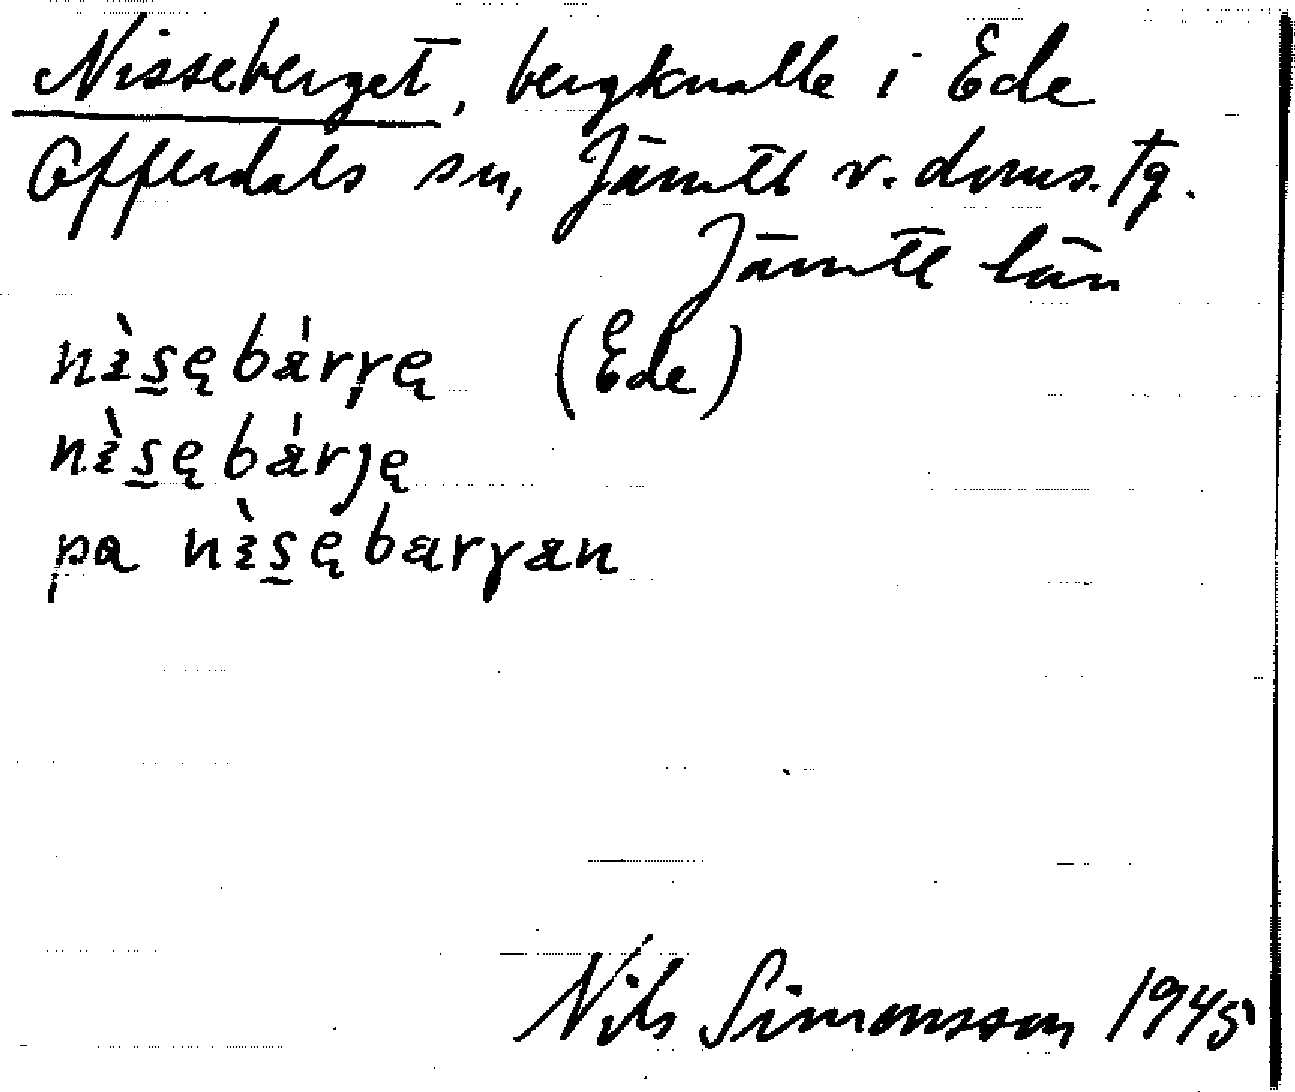 Nisseberget, bergknalle i Ede
Offerdals sn, Jämtl v. doms. tg.
Jämtl län
nìs̱ębárγę (Ede)
nìs̱ębárję
pa nìs̱ębarγan
Nils Simonsson 1945